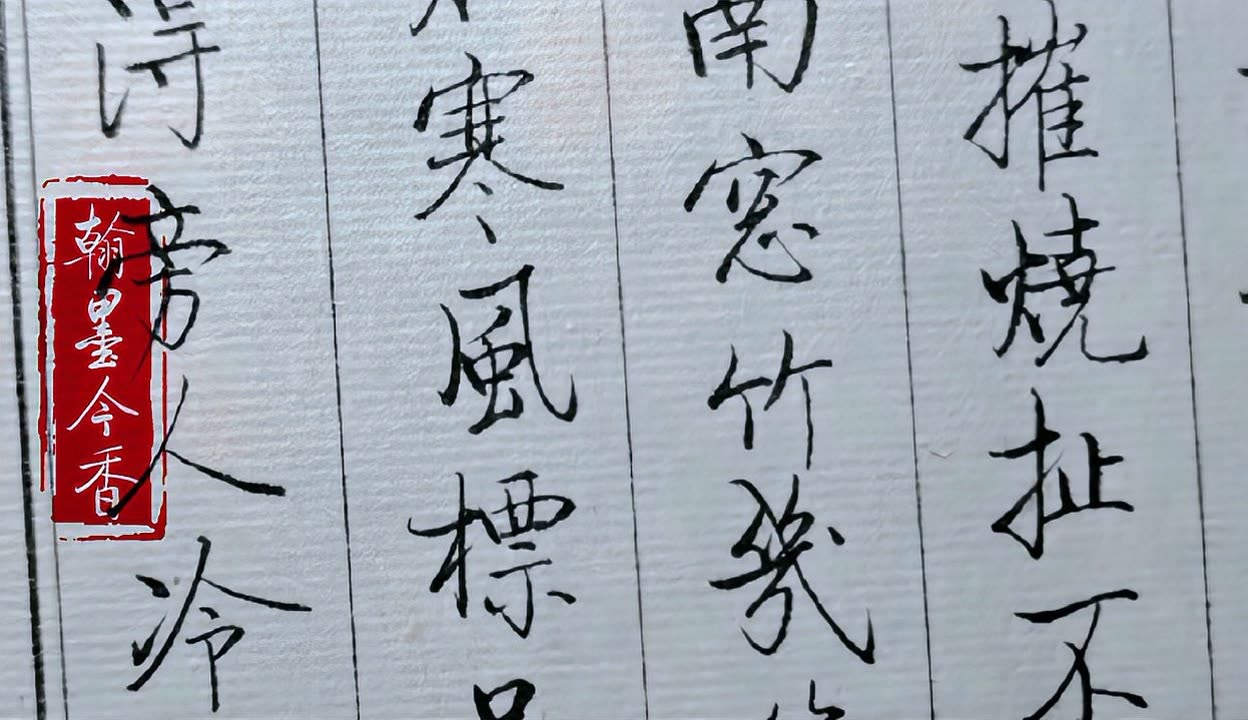 摧燒扯不
南窓竹幾
寒風標
得旁人冷
翰墨今香